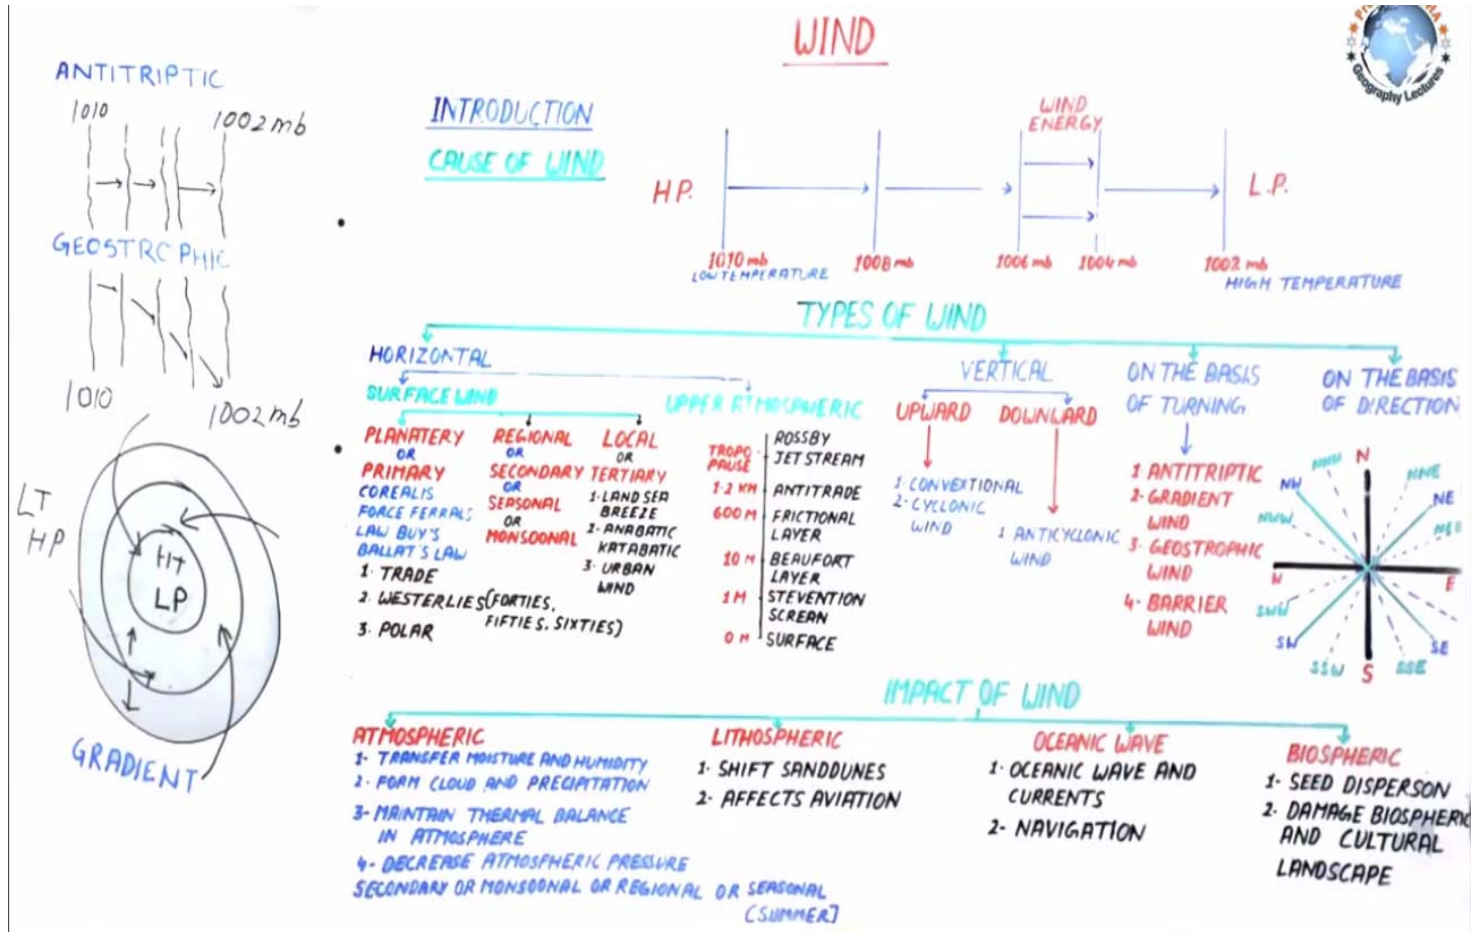 WIND
Geography Lectures
ANTITRIPTIC
1010
1002mb
GEOSTROPHIC
1010
1002mb
LT
HP
HT
LP
GRADIENT
INTRODUCTION
CAUSE OF WIND
WIND
ENERGY
H.P.
L.P.
1010 mb
1008 mb
1006 mb
1004 mb
1002 mb
LOW TEMPERATURE
HIGH TEMPERATURE
TYPES OF WIND
HORIZONTAL
SURFACE WIND
PLANATERY
OR
PRIMARY
COREALIS
FORCE FERRALS
LAW BUY'S
BALLAT'S LAW
1. TRADE
2. WESTERLIES (FORTIES,
FIFTIES, SIXTIES)
3. POLAR
REGIONAL
OR
SECONDARY
OR
SEASONAL
OR
MONSOONAL
LOCAL
OR
TERTIARY
1. LAND SEA
BREEZE
2. ANABATIC
KATABATIC
3. URBAN
WIND
UPPER ATMOSPHERIC
TROPO
PAUSE
ROSSBY
JET STREAM
1-2 KM ANTITRADE
600 M FRICTIONAL
LAYER
10 M BEAUFORT
LAYER
1 M STEVENTION
SCREAN
0 M SURFACE
VERTICAL
UPWARD
1. CONVEXTIONAL
2- CYCLONIC
WIND
DOWNWARD
1 ANTICYCLONIC
WIND
ON THE BASIS
OF TURNING
1 ANTITRIPTIC
2- GRADIENT
WIND
3- GEOSTROPHIC
WIND
4- BARRIER
WIND
ON THE BASIS
OF DIRECTION
N
NNW
NNE
NW
NE
NWW
E
SWW
SW
SE
SSW
S
SSE
IMPACT OF WIND
ATMOSPHERIC
1- TRANSFER MOISTURE AND HUMIDITY
2- FORM CLOUD AND PRECIPITATION
3- MAINTAIN THERMAL BALANCE
IN ATMOSPHERE
4- DECREASE ATMOSPHERIC PRESSURE
SECONDARY OR MONSOONAL OR REGIONAL OR SEASONAL
[SUMMER]
LITHOSPHERIC
1. SHIFT SANDDUNES
2- AFFECTS AVIATION
OCEANIC WAVE
1. OCEANIC WAVE AND
CURRENTS
2- NAVIGATION
BIOSPHERIC
1- SEED DISPERSON
2- DAMAGE BIOSPHERIC
AND CULTURAL
LANDSCAPE